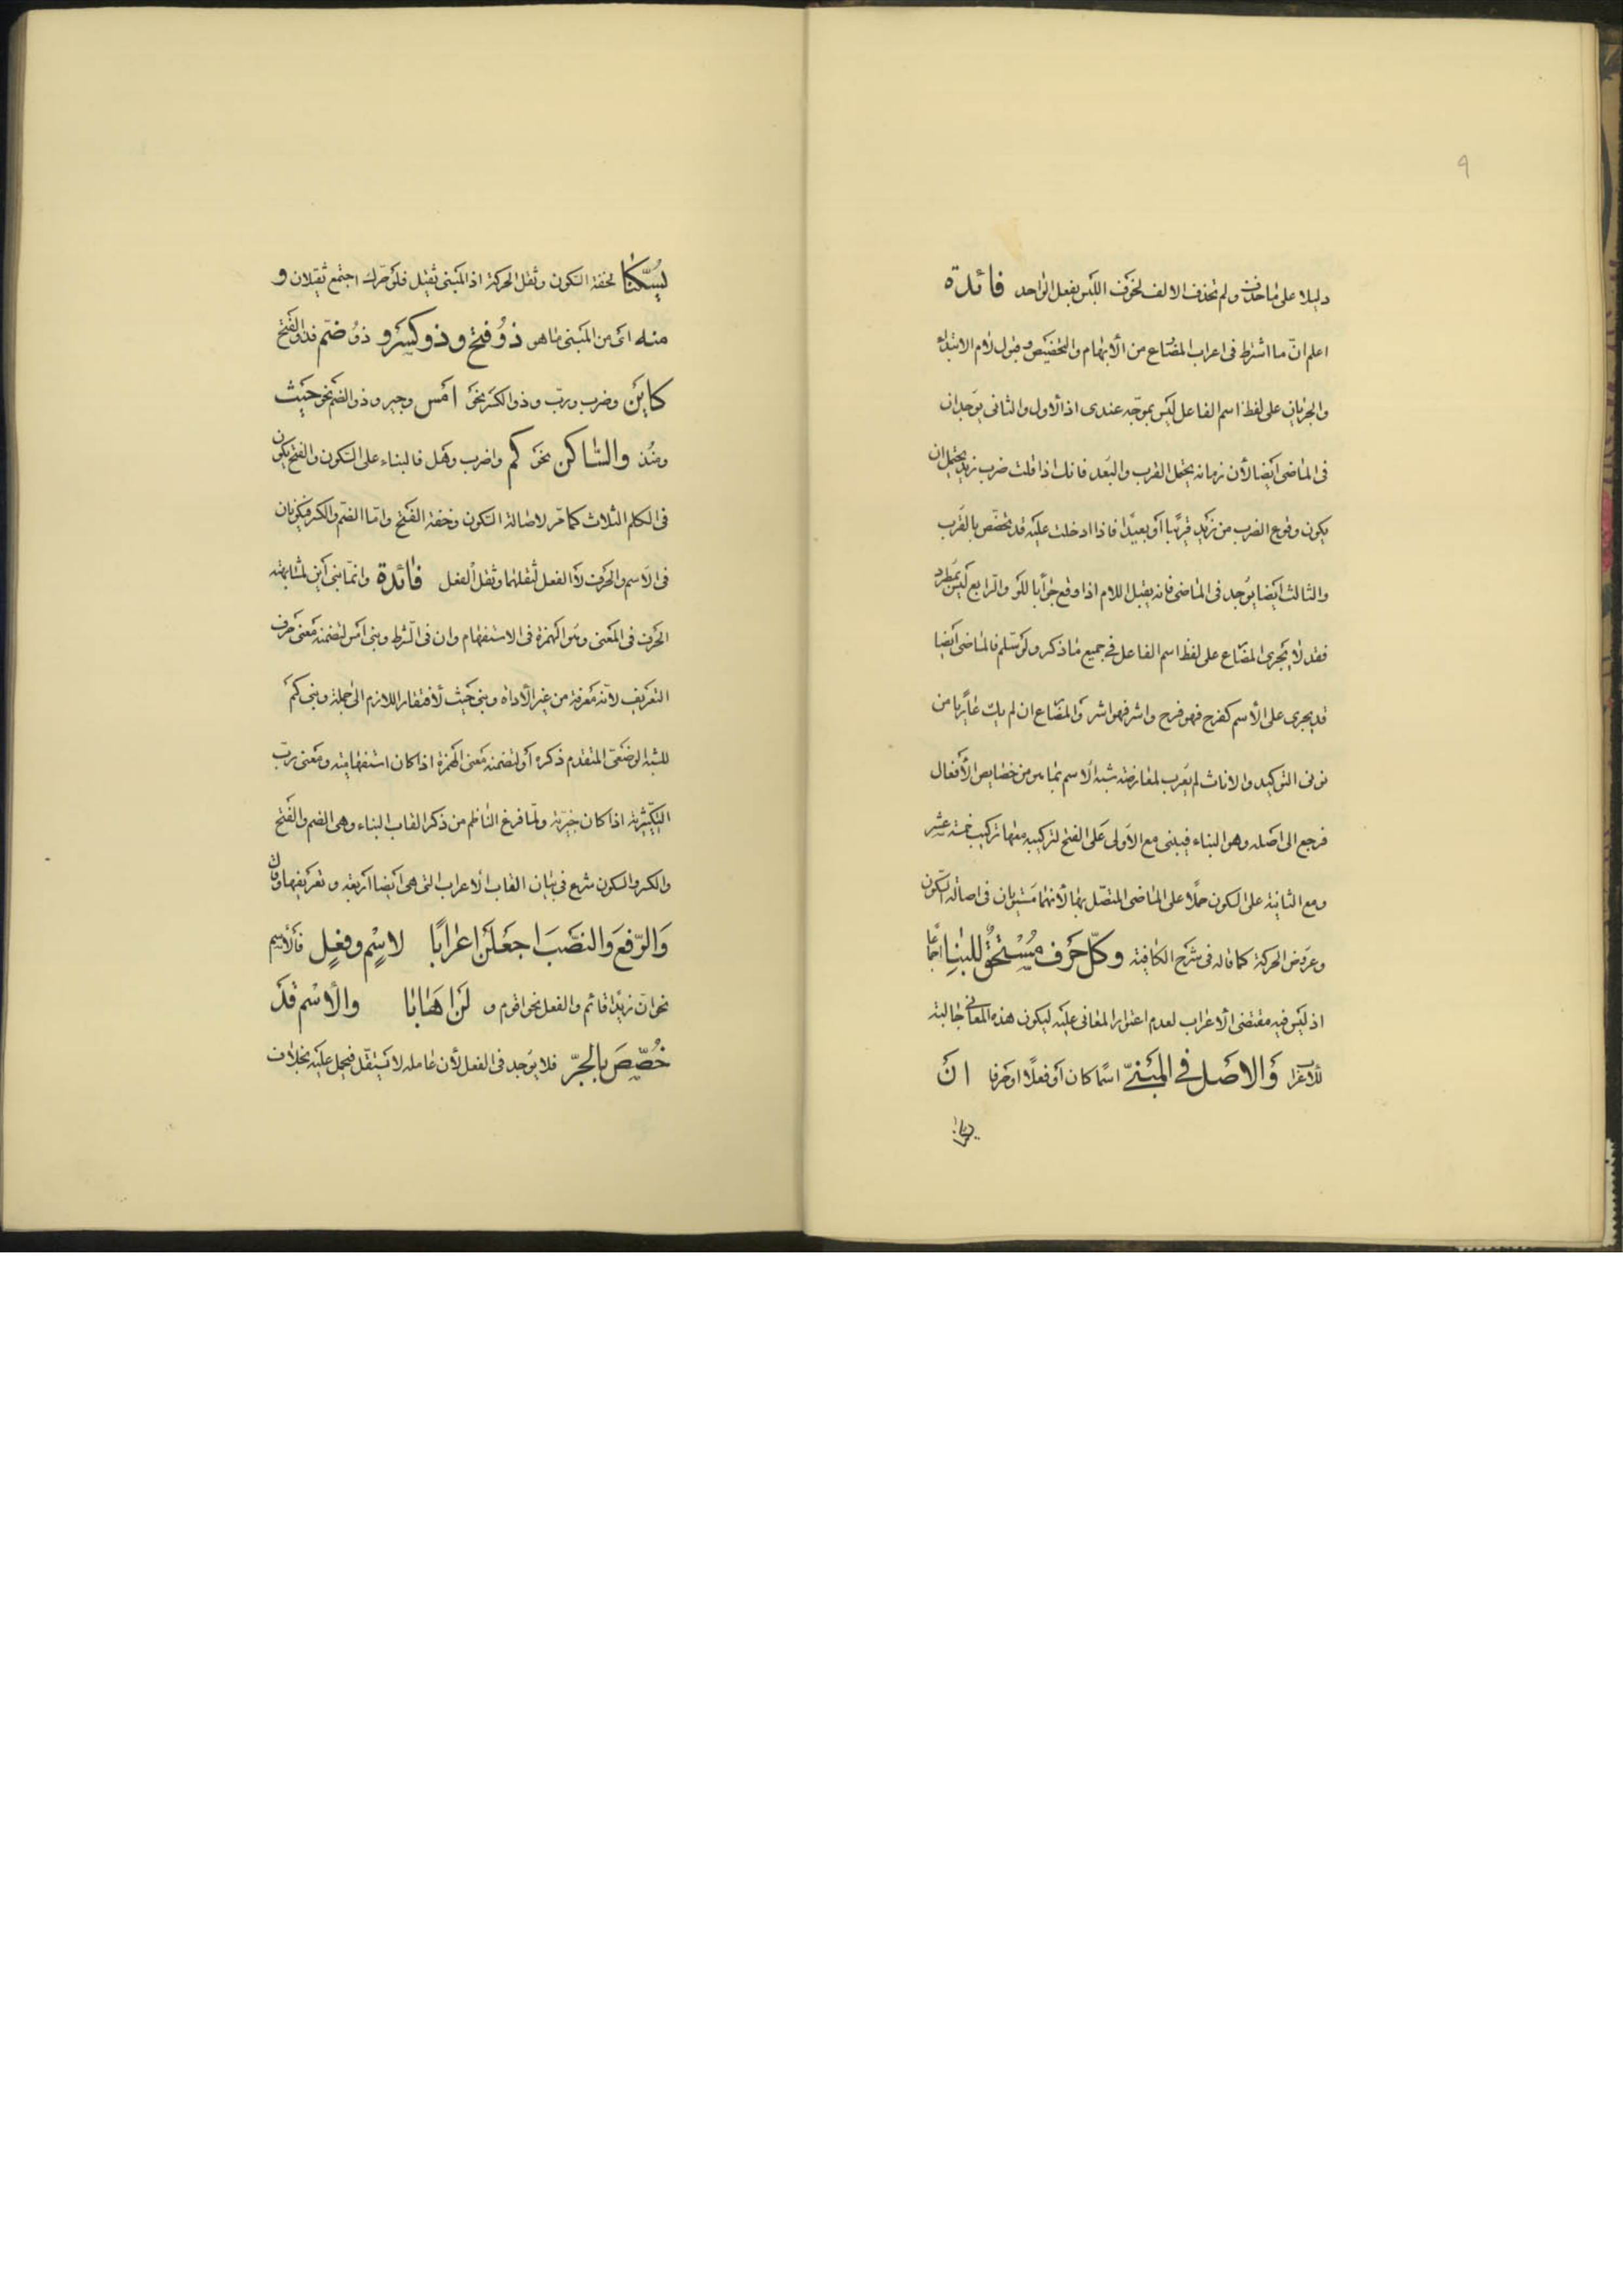 ٩
دليلا على ما حذفت ولم تحذف الالف لخوف اللبس بفعل الواحد فائدة
اعلم انّ ما اشترط فى اعراب المضارع من الابهام والتخصيص وقبول لام الابتداء
والجريان على لفظ اسم الفاعل ليس بموجّه عندى اذ الاول والثانى يوجدان
فى الماضى ايضا لأن زمانه يحتمل القرب والبعد فانك اذا قلت ضرب زيد يحتمل ان
يكون وقوع الضرب من زيد قريبًا أو بعيدًا فاذا ادخلت عليه قد تخصّص بالقرب
والثالث ايضا يوجد فى الماضى فانه يقبل اللام اذا وقع جوابا للو والرابع ليس بمطرد
فقد لا يجرى المضارع على لفظ اسم الفاعل فى جميع ما ذكر ولو سلم فالماضى ايضا
قد يجرى على الأسم كفرح فهو فرح واشر فهو اشر والمضارع ان لم يك عاريا من
نونى التوكيد والاناث لم يعرب لمعارضته شبه الاسم بما هو من خصايص الأفعال
فرجع الى اصله وهو البناء فيبنى مع الأولى على الفتح لتركيبه معها تركيب خمسة عشر
ومع الثانية على السكون حملًا على الماضى المتصل بها لأنهما مستويان فى اصالة السكون
وعروض الحركة كما قاله فى شرح الكافية وكلّ حرف مُسْتحقٌّ للبنا اجماعا
اذ ليس فيه مقتضى الاعراب لعدم اعتوار المعانى عليه ليكون هذه المعانى جالبة
للاعراب والاصل فى المبنىّ اسمًا كان أو فعلًا او حرفا ان
يسكنا
يُسَّكنا لخفة السكون وثقل الحركة اذ المبنى ثقيل فلو حرّك اجتمع ثقيلان و
منه اى من المبنى ما هو ذوُ فتح وذو كسر و ذوُ ضمّ فذو الفتح
كاين وضرب وربّ وذو الكسر نحو امس وجير وذو الضم نحو حيث
ومنذ والسّاكن نحو كم واضرب وهل فالبناء على السكون والفتح يكون
فى الكلم الثلاث كما مّر لاصالة السكون وخفة الفتح وامّا الضمّ والكسر فيكونان
فى الاسم والحرف لا الفعل لثقلهما وثقل الفعل فائدة وانّما بنى أين لمشابهته
الحرف فى المعنى وهو الهمزة فى الاستفهام وان فى الشرط وبنى امس لتضمنه معنى حرف
التعريف لانّه معرفة من غير الأداة وبنى حيث لأفتقار اللازم الى جملة وبنى كم
للشبه الوضعى المتقدم ذكره أو لتضمنه معنى الهمزة اذا كان استفهامية ومعنى ربّ
التكثيرية اذا كان خبريّة ولمّا فرغ الناظم من ذكر القاب البناء وهى الضم والفتح
والكسر والسكون شرع فى بيان القاب الاعراب التى هى ايضا اربعة وتعريفها وقال
وَالرّفعَ وَالنصْبَ اجعَلَن اعرابًا لاسْمٍ وفعْلٍ فالأسم
نحو انّ زيدًا قائم والفعل نحو اقوم و لَن اهَابَا والأسْم قدْ
خُصّصَ بالجرّ فلا يوجد فى الفعل لأن عامله لا يستقلّ فيحمل عليه بخلاف